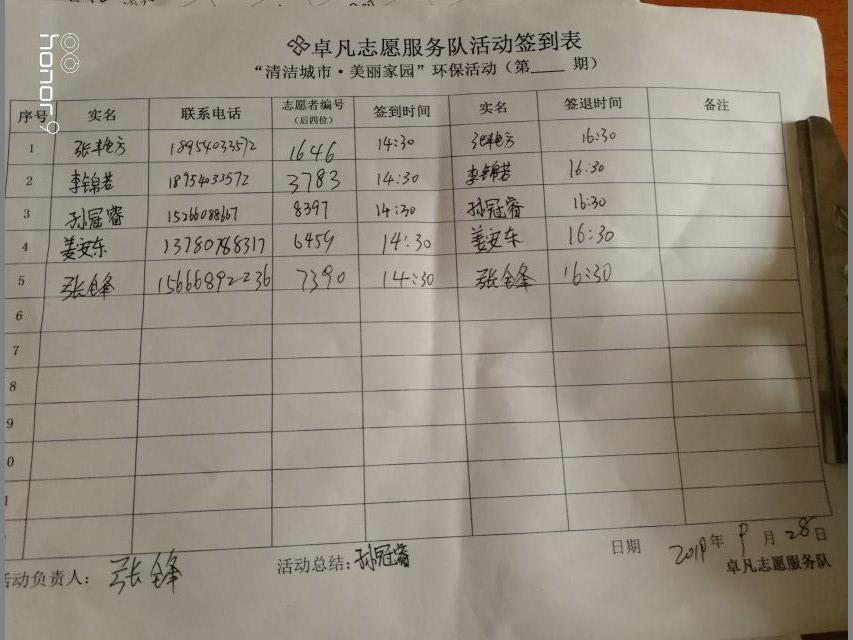 honor9
卓凡志愿服务队活动签到表
“清洁城市·美丽家园”环保活动（第____ 期）
序号 实名 联系电话 志愿者编号（后四位） 签到时间 实名 签退时间 备注
1 18954033572 1646 14:30 16:30
2 李锦若 18954033572 3783 14:30 李锦若 16:30
3 孙冠睿 15266088667 8397 14:30 孙冠睿 16:30
4 姜安东 13780768317 6459 14:30 姜安东 16:30
5 张锋 15666892236 7390 14:30 张锋 16:30
6
7
8
9
0
1
活动负责人：张锋 活动总结：孙冠睿 日期 2019年9月28日
卓凡志愿服务队